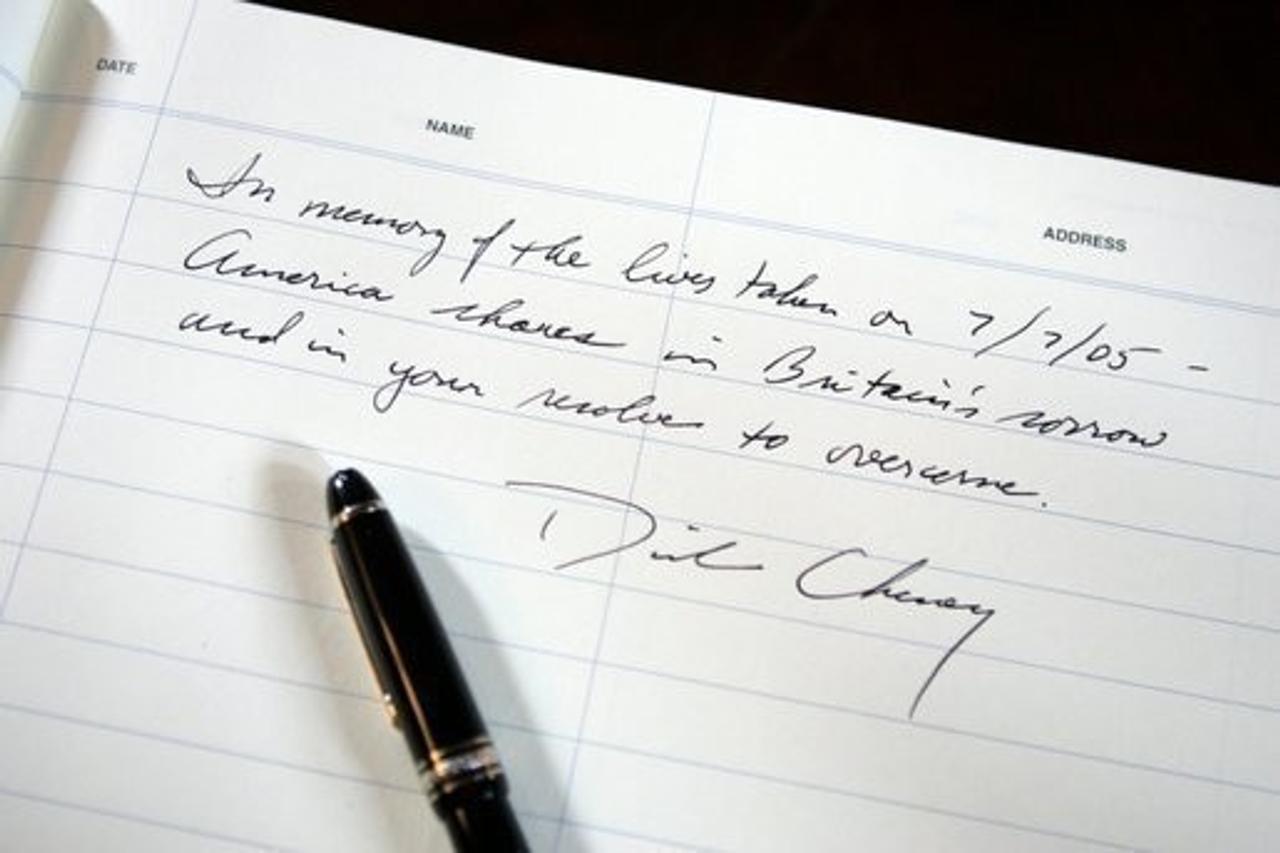 DATE
NAME
ADDRESS
In memory of the lives taken on 7/7/05 -
America shares in Britain's sorrow
and in your resolve to overcome.
Dick Cheney